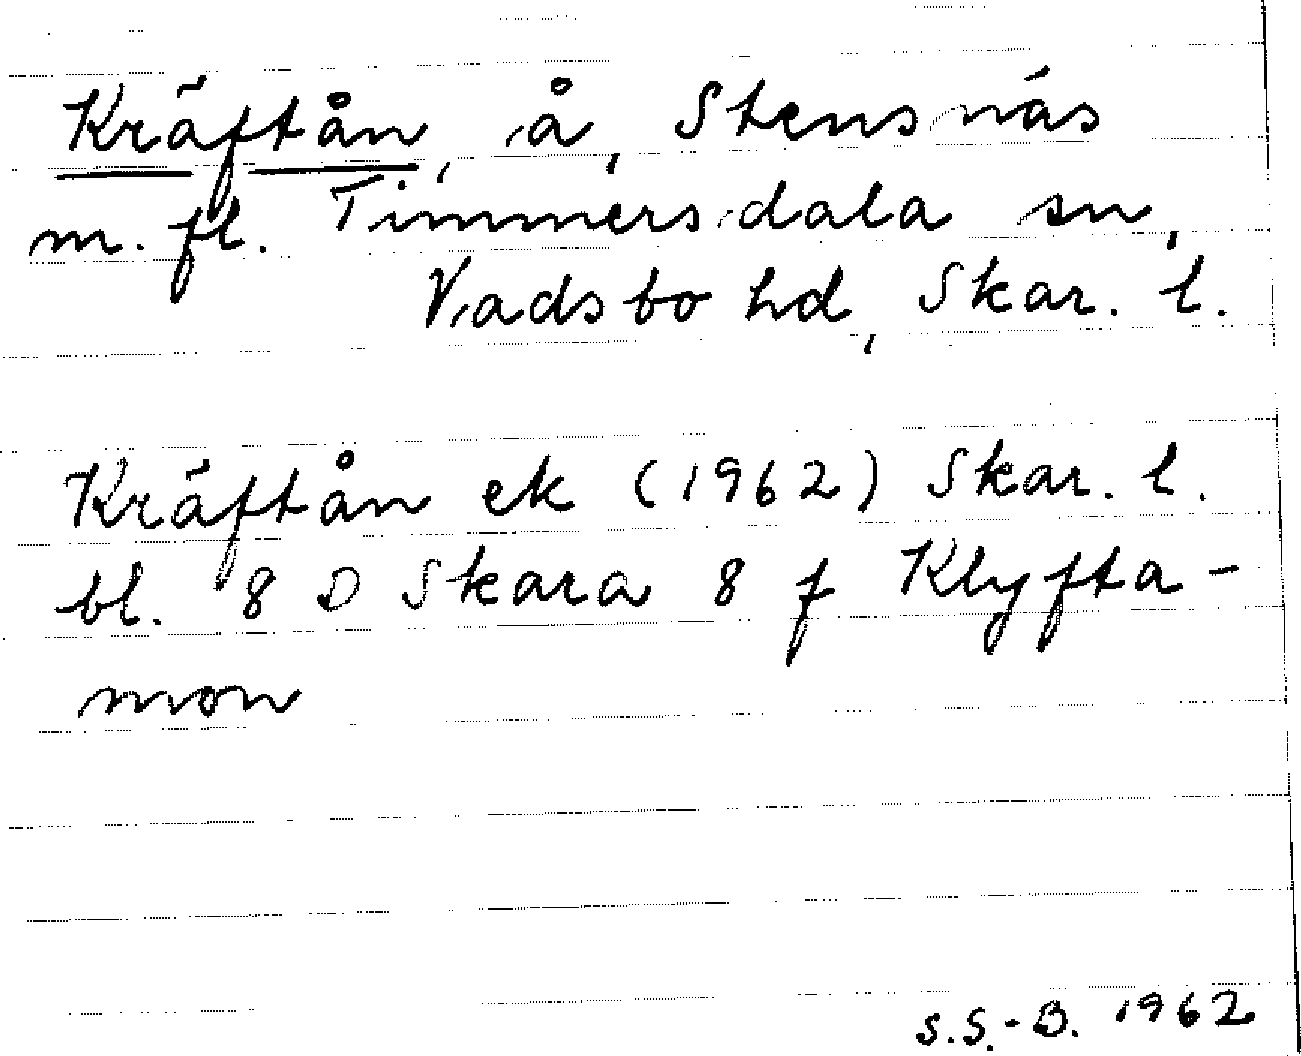 Kräftån, å, Stensnäs
m. fl. Timmersdala sn,
Vadsbo hd, Skar. l.
Kräftån ek (1962) Skar. l.
bl. 8 D Skara 8 f Klyfta-
mon
S.S.-B. 1962